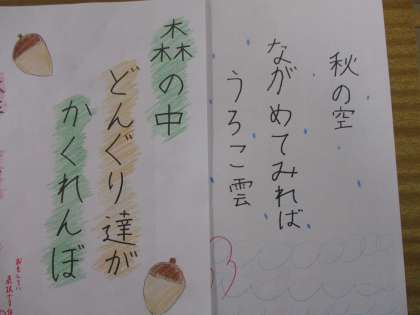 秋の空
ながめてみれば
うろこ雲
森の中
どんぐり達が
かくれんぼ